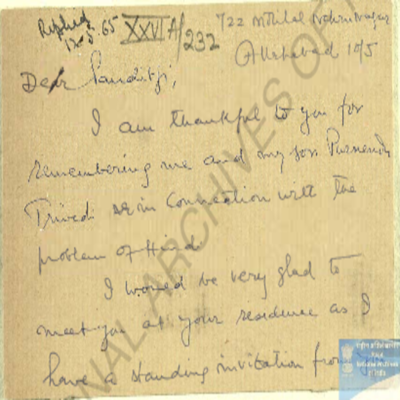 Replied
12-5-65
XXVI A/232
722 Motilal Nehru Nagar
Allahabad 10/5
Dear Panditji,
I am thankful to you for
remembering me and my son Purnendu
Trivedi in Connection with the
problem of Hindi
I would be very glad to
meet you at your residence as I
have a standing invitation from
NATIONAL ARCHIVES OF